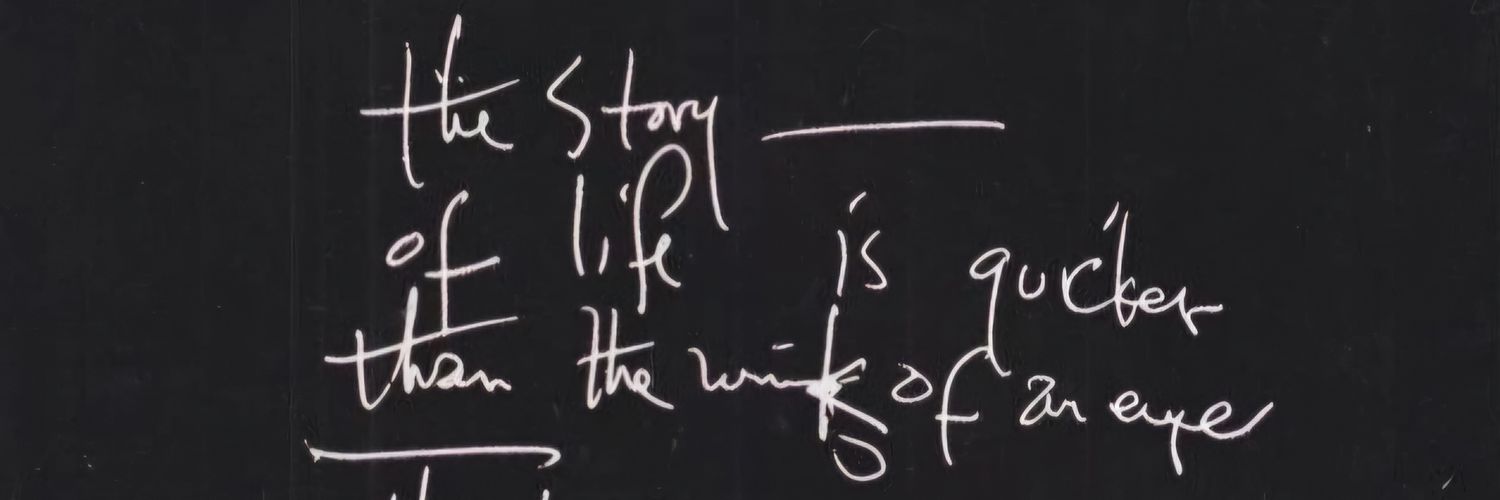 the story —
of life is quicker
than the wink of an eye